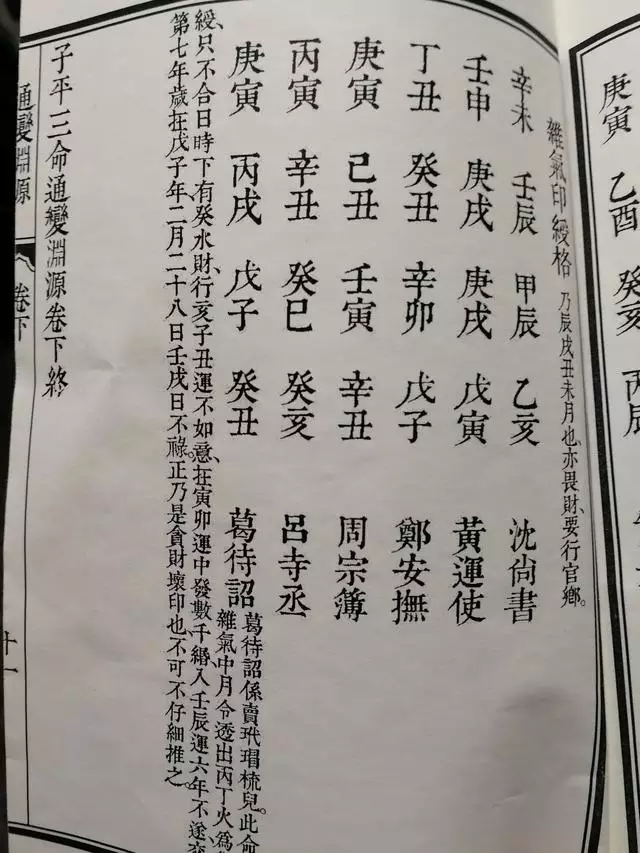 庚寅 乙酉 癸亥 丙辰
雜氣印綬格 乃辰戌丑未月也、亦畏財、要行官鄉。
辛未 壬辰 甲辰 乙亥 沈尚書
壬申 庚戌 庚戌 戊寅 黃運使
丁丑 癸丑 辛卯 戊子 鄭安撫
庚寅 己丑 壬寅 辛丑 周宗簿
丙寅 辛丑 癸巳 癸亥 呂寺丞
庚寅 丙戌 戊子 癸丑 葛待詔
葛待詔係賣玳瑁梳兒。此命
雜氣中月令透出丙丁火爲
綬、只不合日時下有癸水財、行亥子丑運不如意、在寅卯運中發數千緡、入壬辰運六年不遂、交
第七年歲在戊子年二月二十八日壬戌日不祿。正乃是貪財壞印也、不可不仔細推之。
子平三命通變淵源卷下終
通變淵源 卷下 十一